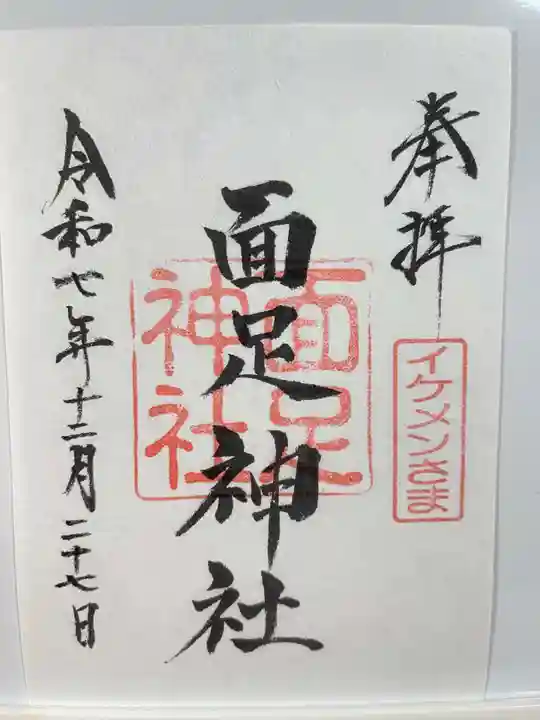 奉拝
イケメンさま
面足神社
面足
神社
令和七年十二月二十七日